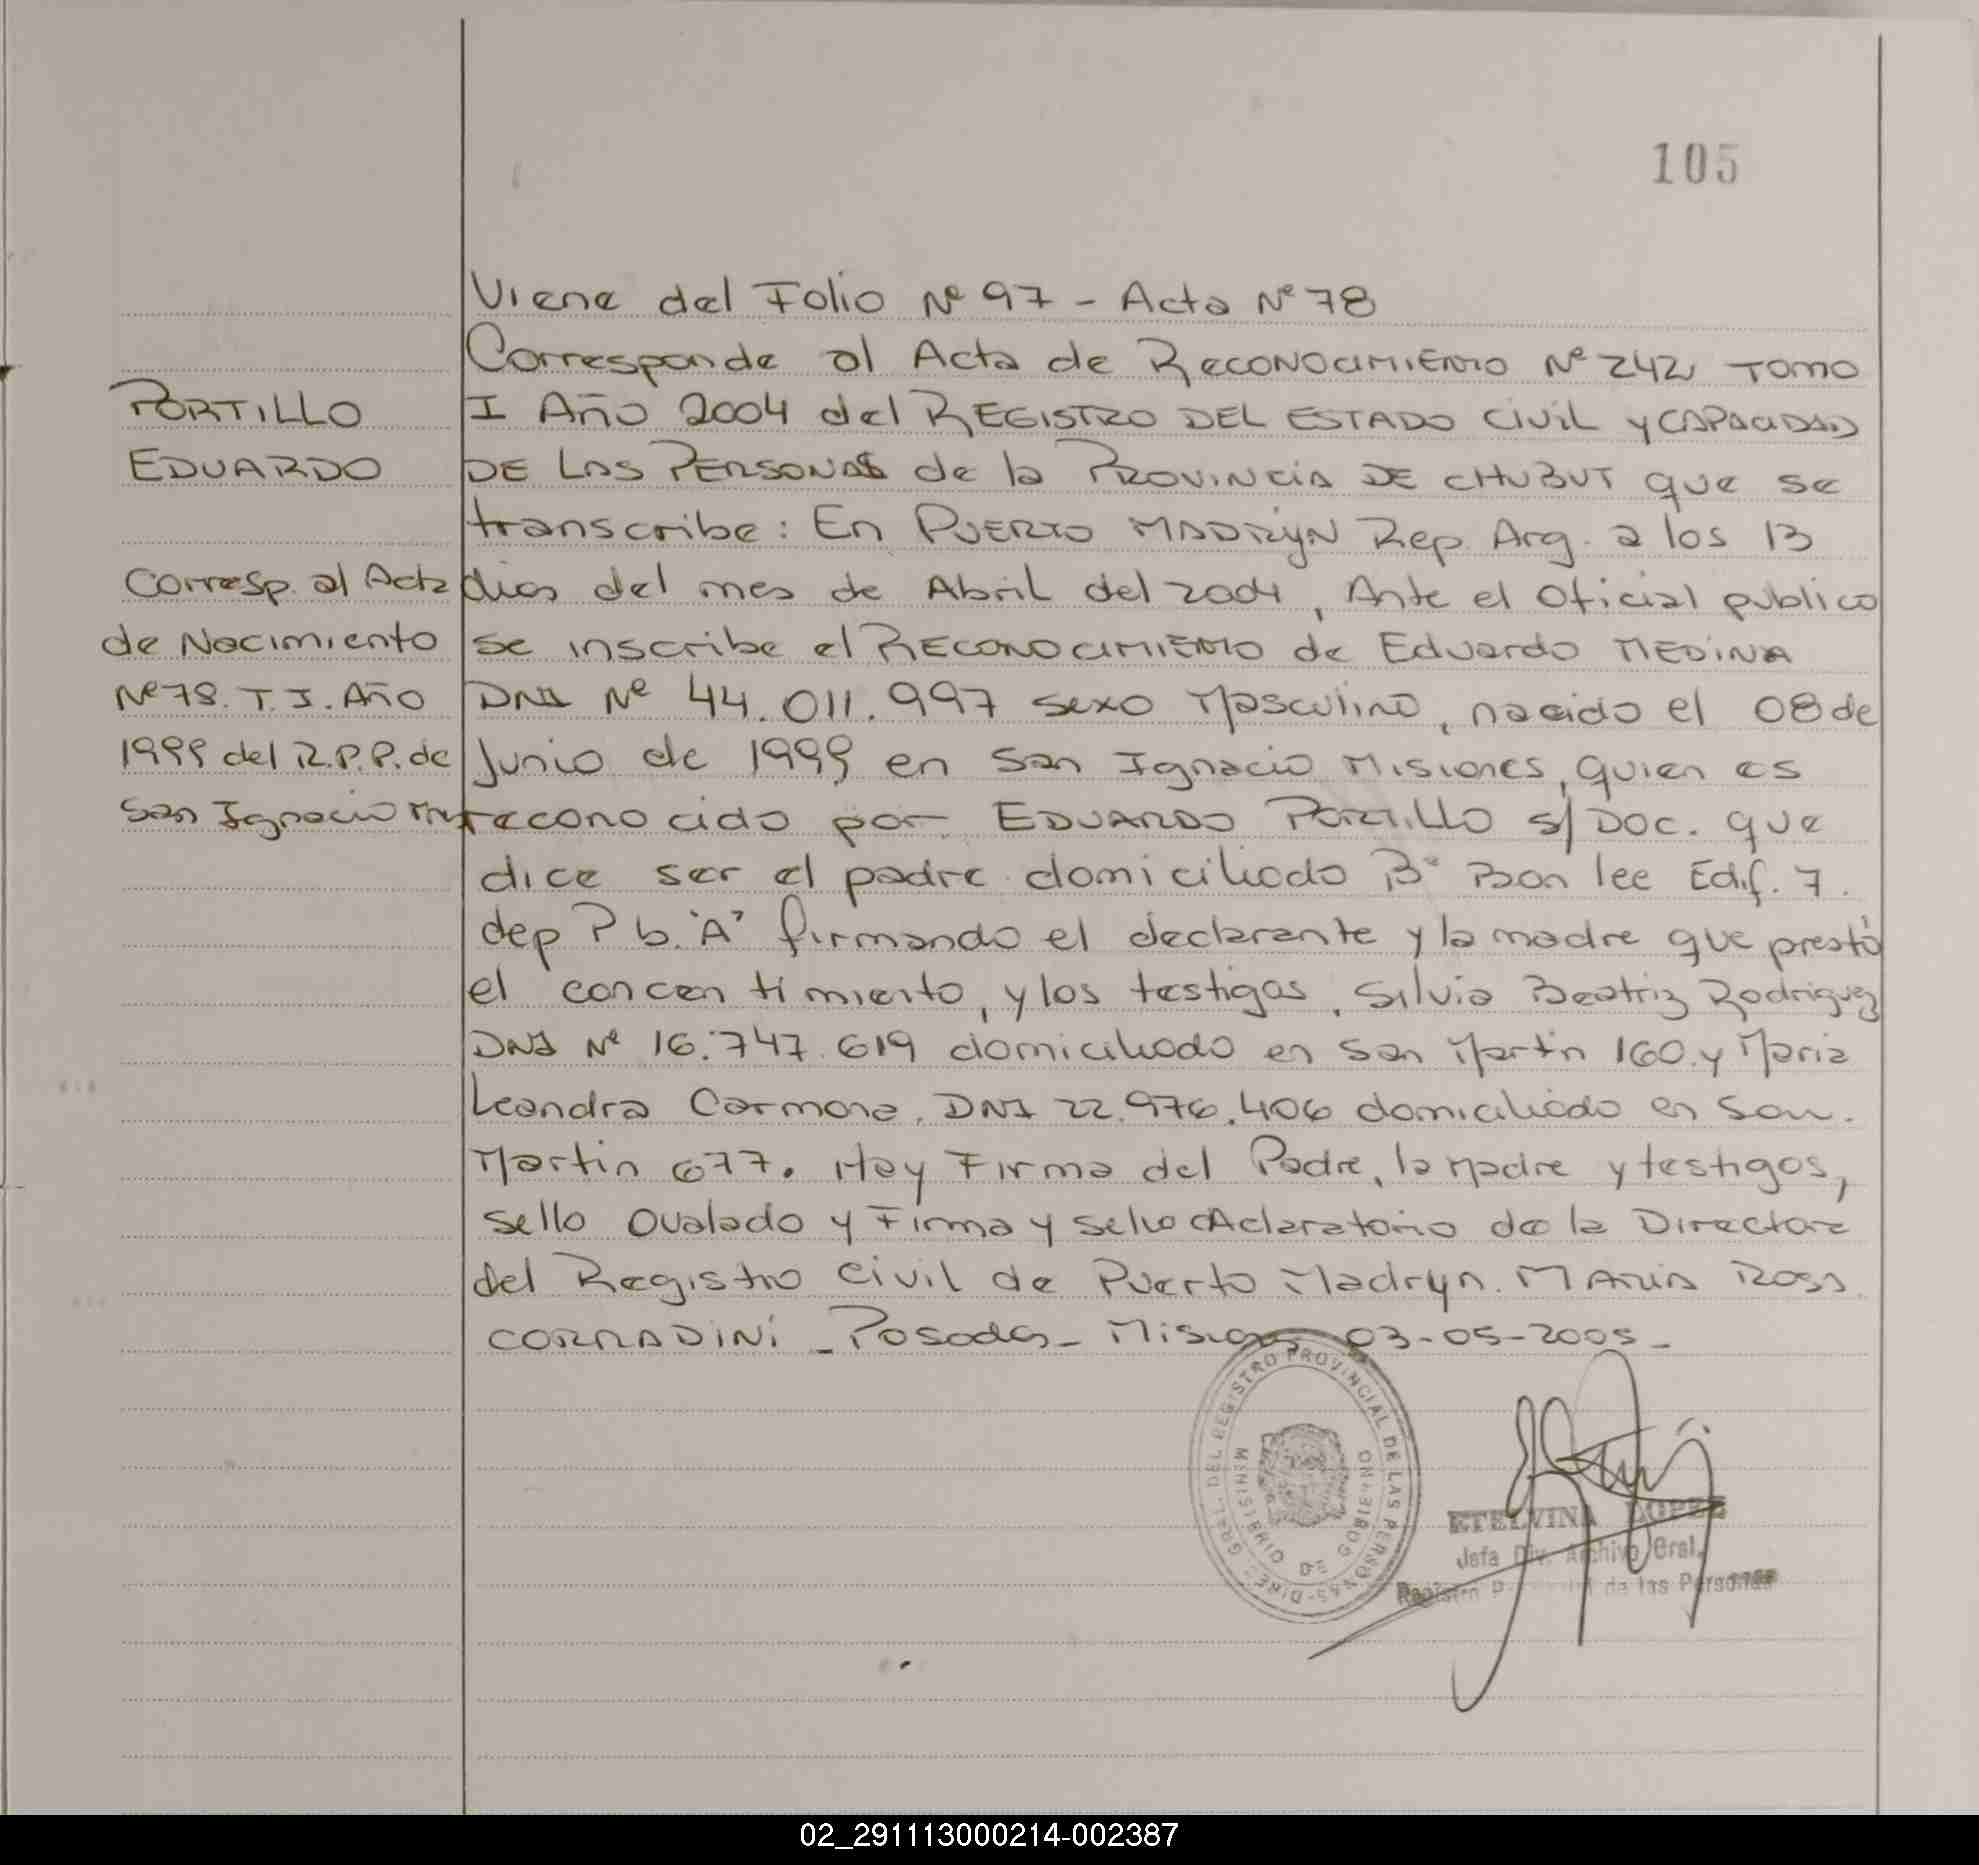 105
Viene del Folio Nº 97 - Acta Nº 78
Corresponde al Acta de RECONOCIMIENTO Nº 242 TOMO
I Año 2004 del REGISTRO DEL ESTADO CIVIL Y CAPACIDAD
DE LAS PERSONAS de la PROVINCIA DE CHUBUT que se
transcribe: En PUERTO MADRYN Rep. Arg. a los 13
dias del mes de Abril del 2004, Ante el Oficial publico
se inscribe el RECONOCIMIENTO de Eduardo MEDINA
DNI Nº 44.011.997 sexo Masculino, nacido el 08 de
Junio de 1999 en San Ignacio Misiones, quien es
reconocido por EDUARDO PORTILLO s/DOC. que
dice ser el padre domiciliado Bº Ban lee Edif. 7.
dep P b. "A" firmando el declarante y la madre que prestó
el concentimiento, y los testigos, Silvia Beatriz Rodriguez
DNI Nº 16.747.619 domiciliado en San Martin 160. y Maria
Leandra Carmona, DNI 22.976.406 domiciliado en San.
Martin 677. Hay Firma del Padre, la Madre y testigos,
sello Ovalado y Firma y sello Aclaratorio de la Directora
del Registro Civil de Puerto Madryn. MARIA ROSA
CORRADINI - Posadas - Misiones 03-05-2005 -
PORTILLO
EDUARDO
Corresp. al Acta
de Nacimiento
Nº 78. T. I. Año
1999 del R.P.P. de
San Ignacio Mnes
DIREC. GRAL. DEL REGISTRO PROVINCIAL DE LAS PERSONAS
MINISTERIO DE GOBIERNO
ETELVINA LOPEZ
Jefa Div. Archivo Gral.
Registro Provincial de las Personas
02_291113000214-002387